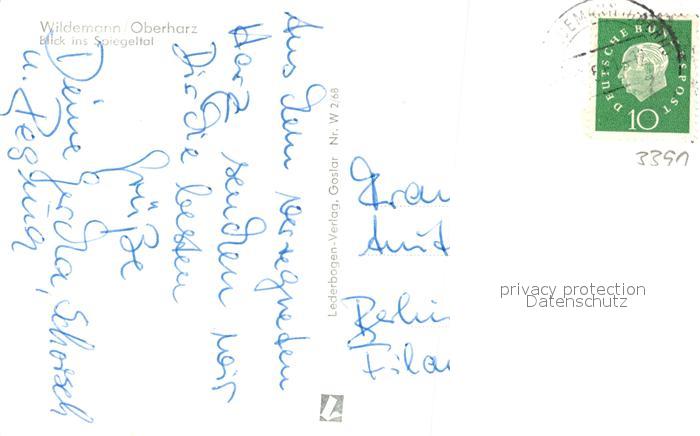 Wildemann/Oberharz
Blick ins Spiegeltal
Aus dem verregneten
Harz senden wir
Dir die besten
Grüße
Deine Gerda, Schorsch
u. Regina
Lederbogen-Verlag, Goslar Nr. W 2,68
Frau
Anit
Berlin
Filan
DEUTSCHE BUNDESPOST
10
3391
privacy protection
Datenschutz